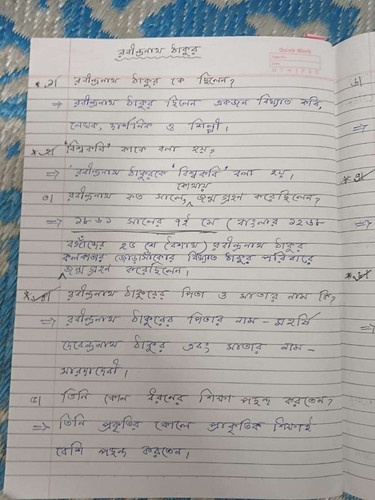 রবীন্দ্রনাথ ঠাকুর
* ১) রবীন্দ্রনাথ ঠাকুর কে ছিলেন?
⇒ রবীন্দ্রনাথ ঠাকুর ছিলেন একজন বিখ্যাত কবি,
লেখক, দার্শনিক ও শিল্পী।
* ২) 'বিশ্বকবি' কাকে বলা হয়?
⇒ রবীন্দ্রনাথ ঠাকুরকে 'বিশ্বকবি' বলা হয়।
কোথায়
৩) রবীন্দ্রনাথ কত সালে, জন্ম গ্রহন করেছিলেন?
⇒ ১৮৬১ সালের ৭ই মে (বাংলার ১২৬৮
বঙ্গাব্দের ২৫ শে বৈশাখ) রবীন্দ্রনাথ ঠাকুর
কলকাতার জোড়াসাঁকোর বিখ্যাত ঠাকুর পরিবারে
জন্ম গ্রহন করেছিলেন।
* ৪) রবীন্দ্রনাথ ঠাকুরের পিতা ও মাতার নাম কি?
⇒ রবীন্দ্রনাথ ঠাকুরের পিতার নাম - মহর্ষি
দেবেন্দ্রনাথ ঠাকুর এবং মাতার নাম -
সারদাদেবী।
৫) তিনি কোন ধরনের শিক্ষা পছন্দ করতেন?
⇒ তিনি প্রকৃতির কোলে প্রাকৃতিক শিক্ষাই
বেশি পছন্দ করতেন।